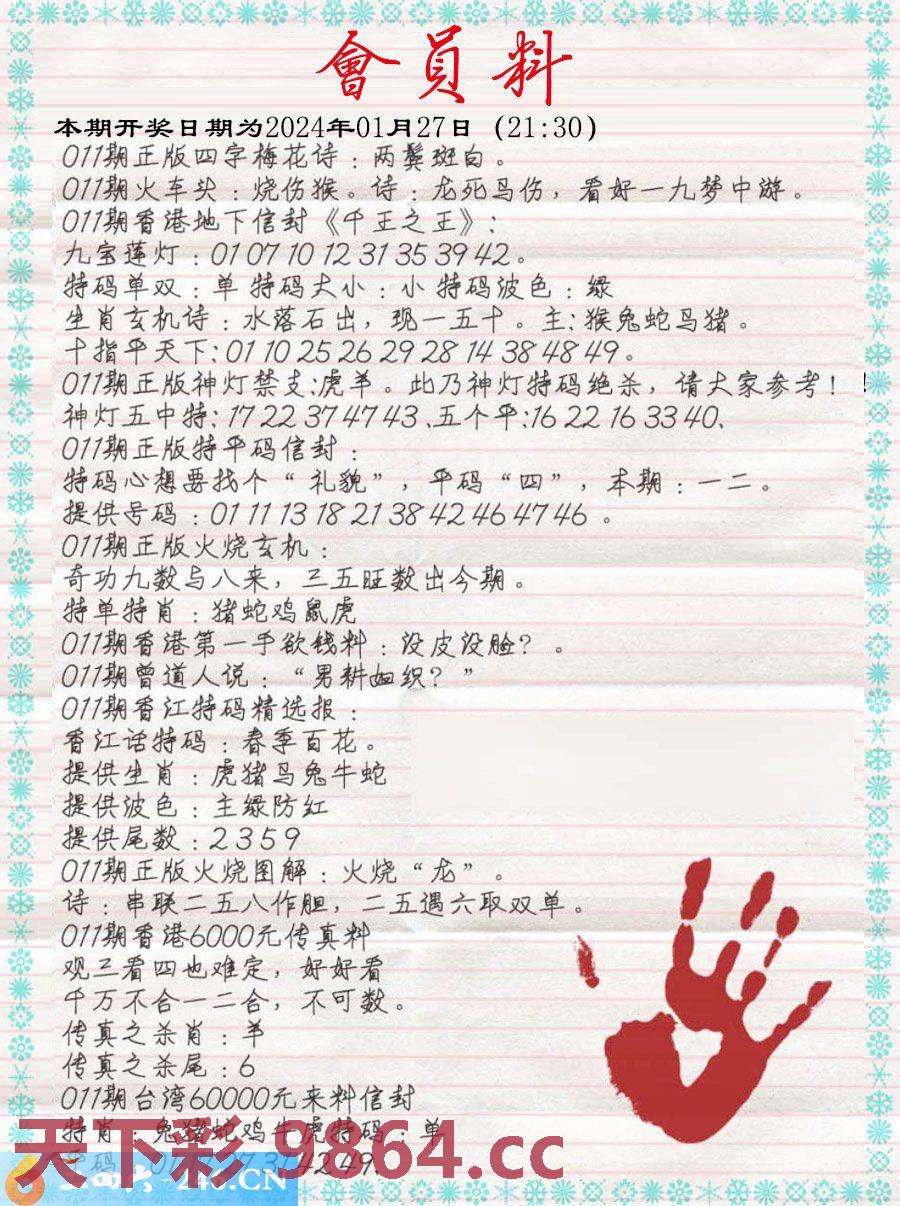 會員料
本期开奖日期为2024年01月27日（21:30）
011期正版四字梅花诗：两鬓斑白。
011期火车头：烧伤猴。诗：龙死鸟伤，看好一九梦中游。
011期香港地下信封《千王之王》：
九宝莲灯：01 07 10 12 31 35 39 42。
特码单双：单 特码大小：小 特码波色：绿
生肖玄机诗：水落石出，现一五十。主：猴兔蛇鸟猪。
十指平天下：01 10 25 26 29 28 14 38 48 49。
011期正版神灯禁支：虎羊。此乃神灯特码绝杀，请大家参考！！
神灯五中特：17 22 37 47 43、五个平：16 22 16 33 40、
011期正版特平码信封：
特码心想要找个“礼貌”，平码“四”，本期：一二。
提供号码：01 11 13 18 21 38 42 46 47 46 。
011期正版火烧玄机：
奇功九数与八来，三五旺数出今期。
特单特肖：猪蛇鸡鼠虎
011期香港第一手欲钱料：没皮没脸？。
011期曾道人说：“男耕妞织？”
011期香江特码精选报：
香江话特码：春季百花。
提供生肖：虎猪鸟兔牛蛇
提供波色：主绿防红
提供尾数：2 3 5 9
011期正版火烧图解：火烧“龙”。
诗：串联二五八作胆，二五遇六取双单。
011期香港6000元传真料
观三看四也难定，好好看
千万不合一二合，不可数。
传真之杀肖：羊
传真之杀尾：6
011期台湾60000元来料信封
特肖：兔猪蛇鸡牛虎特码：单
天下彩 9864.cc
42 49
246.CN